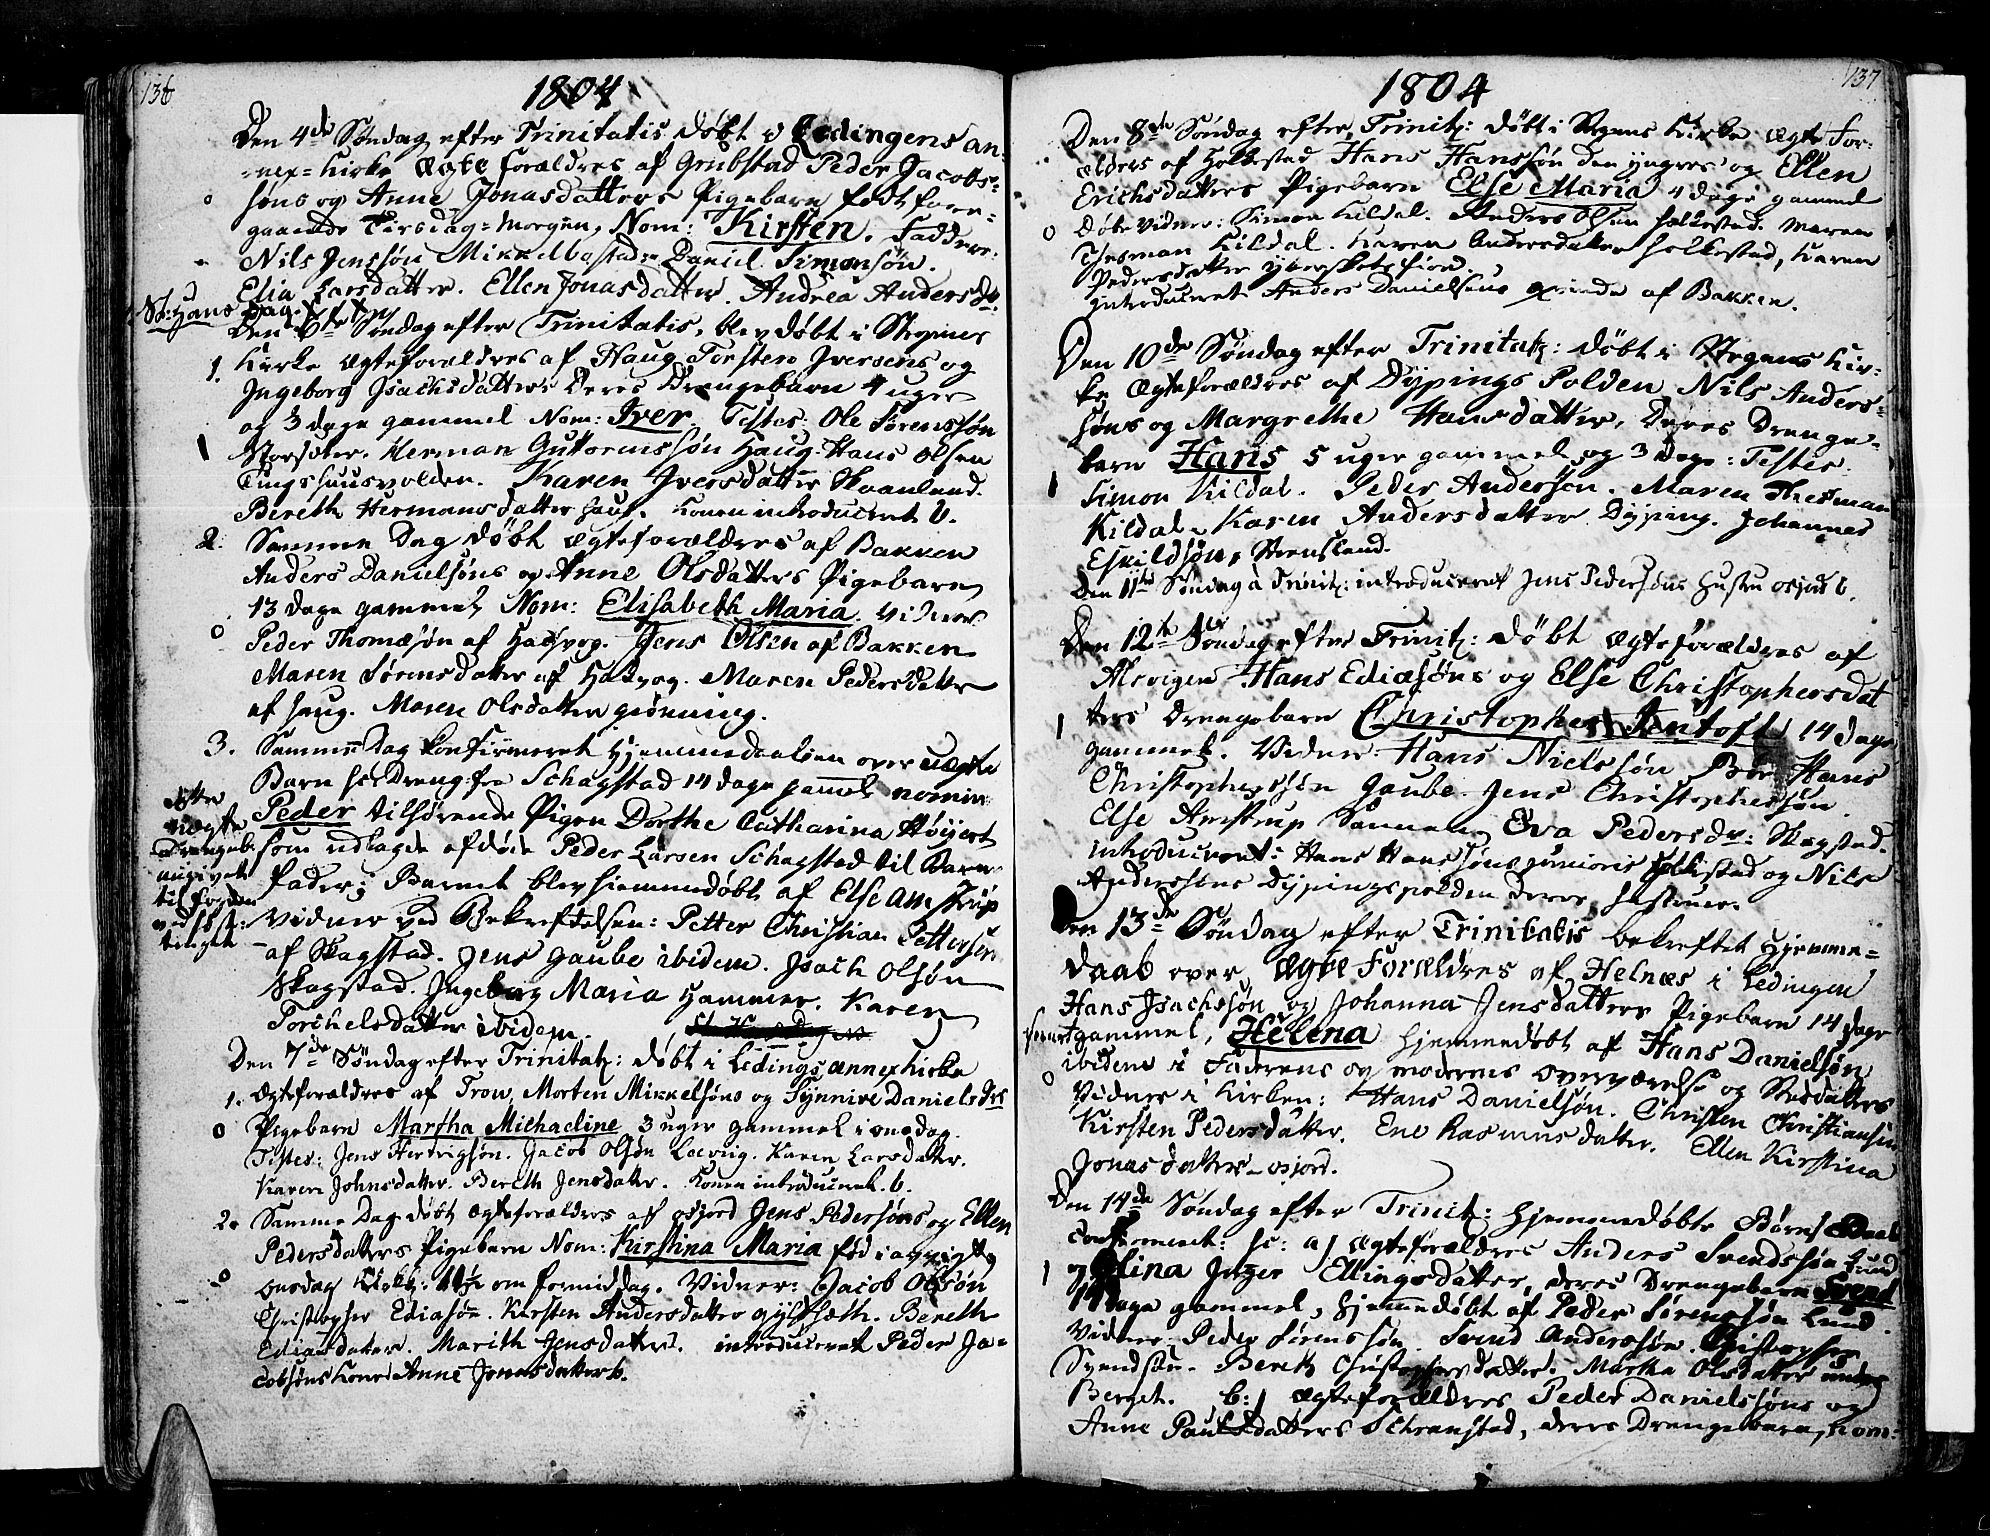 136
1804
Den 4de Søndag efter Trinitatis døbt i Ledingens an-
nex-Kirke Ægte Forældres af Grubstad Peder Jacobs-
søns og Anne Jonasdatters Pigebarn født fore-
gaaende Tirsdag-Morgen, Nom: Kirsten. Faddere:
Nils Jenssøn Daniel Simonsøn.
Elia Larsdatter. Ellen Jonasdatter. Andrea Andersdr:
St: Hans Dag.
Den 6te Søndag efter Trinitatis, blev døbt i Stegens
1. Kirke Ægteforældres af Haug Torsten Iversens og
Ingeborg Isachsdatters Deres Drengebarn 4 uger
og 3 dage gammel Nom: Iver. Testes: Ole Sørenssøn
1 Herman Guttormssøn Haug. Hans Olsen
Tingshuusvolden. Karen Iversdatter Skaanland.
Bereth Hermansdatter Haug. Konen introduceret b.
2. Samme Dag døbt Ægteforældres af Bakken
Anders Danielsøns og Anne Olsdatters Pigebarn
13 dage gammel Nom: Elisabeth Maria. Vidner
0 Peder Thomæsøn af Jens Olsen af Bakken
Maren Sørensdatter af Maren Pedersdatter
af Haug. Maren Olsdatter Grønning.
3. Samme Dag konfirmeret Hjemmedaaben over uægte
Barn en Dreng fra Schagstad 14 dage gammel nomin:
Peder tilhørende Pigen Dorthe Catharina Høyert
uægte
Drengeb:
angivet
til fogden
ved høst-
tinget
som udlagde afdøde Peder Larsen Schagstad til Barne-
fader; Barnet blev hiemmedøbt af Else Amstrup
Vidner ved Bekreftelsen: Petter Christian Pettersen
af Skagstad. Jens Gaube ibidem. Isach Olsøn
Skagstad. Ingeborg Maria Hammer. Karen
Torchelsdatter ibidem.
Den 7de Søndag efter Trinitat: døbt i Ledings annexkirke
1. Ægteforældres af Trow, Morten Mikkelsøns og Synnive Danielsdrs
0 Pigebarn Martha Michaeline 3 uger gammel i onsdag.
Testes: Jens Hertvigsøn. Jacob Olsøn Karen Larsdatter.
Karen Johnsdatter. Bereth Jensdatter. Konen introduceret. b.
2. Samme Dag døbt Ægteforældres af Osjord Jens Pedersøns og Ellen
Pedersdatters Pigebarn Nom: Kirstina Maria fød i
0 onsdag Kl: 11½ om formiddag. Vidner: Jacob Olsøn
Christopher Ediasøn. Kirsten Andersdatter Bereth
Ediasdatter. Marith Jensdatter. introduceret Peder Ja-
cobsøns Kone Anne Jonasdatter b.
137
1804
Den 8de Søndag efter Trinit: døbt i Stegens Kirke Ægte For-
ældres af Holkestad Hans Hanssøn den yngres og Ellen
Erichsdatters Pigebarn Else Maria 4 dage gammel
0 Døbevidner: Simon Kildal. Anders Olsen Holkestad. Maren
Thesman Kildal. Karen Andersdatter Holkestad, Karen
Pedersdatter
Introduceret Anders Danielsøns qvinde af Bakken.
Den 10de Søndag efter Trinitat: døbt i Stegens Kir-
ke Ægteforældres af Dypings Polden Nils Anders-
søns og Margrethe Hansdatter, Deres Drenge-
barn Hans 5 uger gammel og 3 Dage: Testes:
1 Simon Kildal. Peder Anderssøn. Maren Thesman
Kildal. Karen Andersdatter Dyping. Johannes
Eskildsøn, Strensland.
Den 11te Søndag à Trinit: introduceret Jens Pedersøns Hustru Osjord b.
Den 12te Søndag efter Trinit: døbt Ægteforældres af
Alevigen Hans Ediæsøns og Else Christophersdat
1 ters Drengebarn Christopher Jentoft 14 dage
gammel. Vidner: Hans Nielssøn Hans
Christopherssøn Gaube. Jens Christopherssøn
Else Amstrup Eva Pedersdr: Skagstad.
introduceret: Hans Hanssøns junioris Holkestad og Nils
Anderssøns Dypingspolden deres Hustruer.
Den 13de Søndag efter Trinitatis bekreftet Hjemme-
daab over Ægte Forældres af Helnæs i Ledingen
Hans Isachssøn og Johanna Jensdatters Pigebarn 14 dage
gammel, Helena hjemmedøbt af Hans Danielsøn
ibidem i Faderens og moderens overværelse og
0 Vidner i Kirken: Hans Danielsøn. Christen Christiansen
Kirsten Pedersdatter. Ene Rasmusdatter. Ellen Kirstina
Jonasdatter Osjord.
Den 14de Søndag efter Trinit: hjemmedøbte Børns Daab
confirmeret: sc: a) Ægteforældres Anders Svendssøn Lund
1 og Elina Inger Ellingsdatter, deres Drengebarn Svend
14 dage gammel, hjemmedøbt af Peder Sørenssøn Lund.
Vidner: Peder Sørenssøn. Svend Anderssøn. Christopher
Svendsøn. Beret Christophersdatter. Martha Olsdatter under
Berget. b:) Ægteforældres Peder Danielssøns og
Anne Paulsdatters Schranstad, deres Drengebarn, hom-